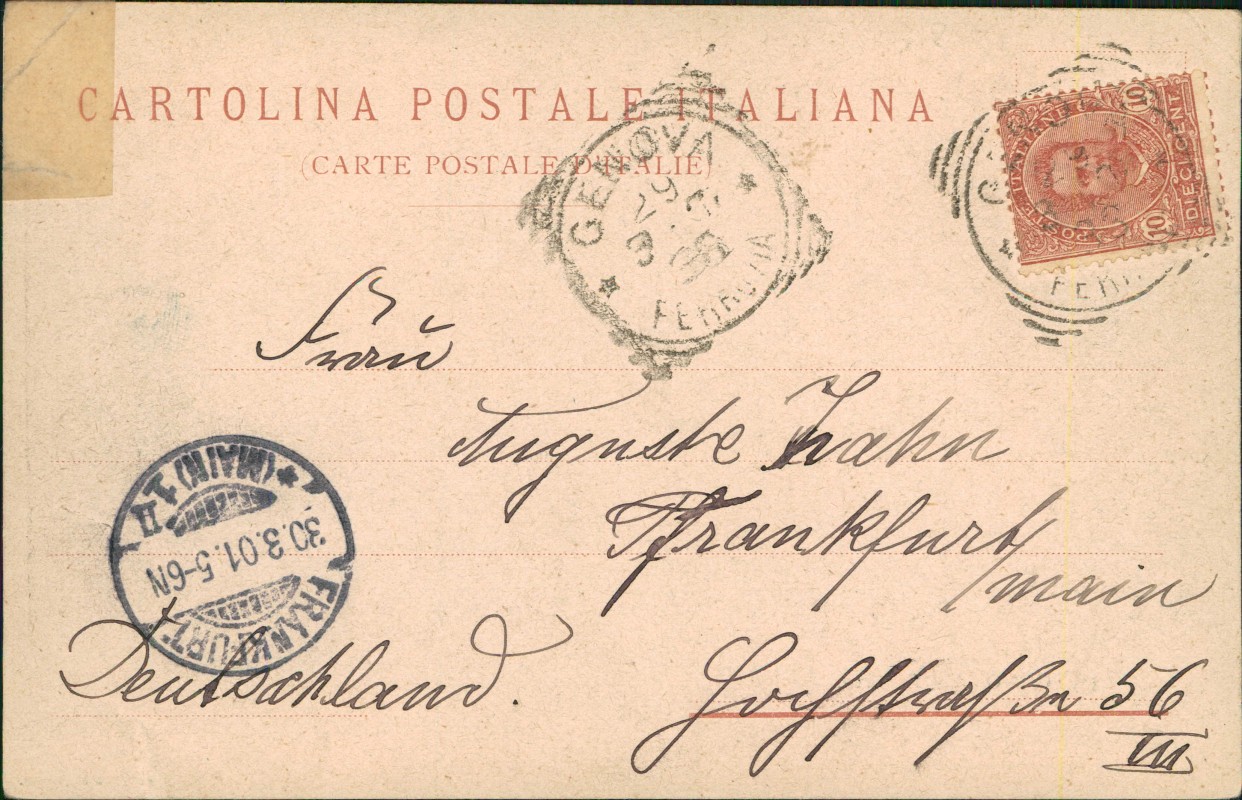 CARTOLINA POSTALE ITALIANA
(CARTE POSTALE D'ITALIE)
GENOVA
29
3
FERROVIA
POSTE ITALIANE
10 DIECI CENT. 10
FERR
Frau
Auguste Hahn
Frankfurt
/main
Hochstraße 56
III
Deutschland.
FRANKFURT
(MAIN) 1
30.3.01.5-6N